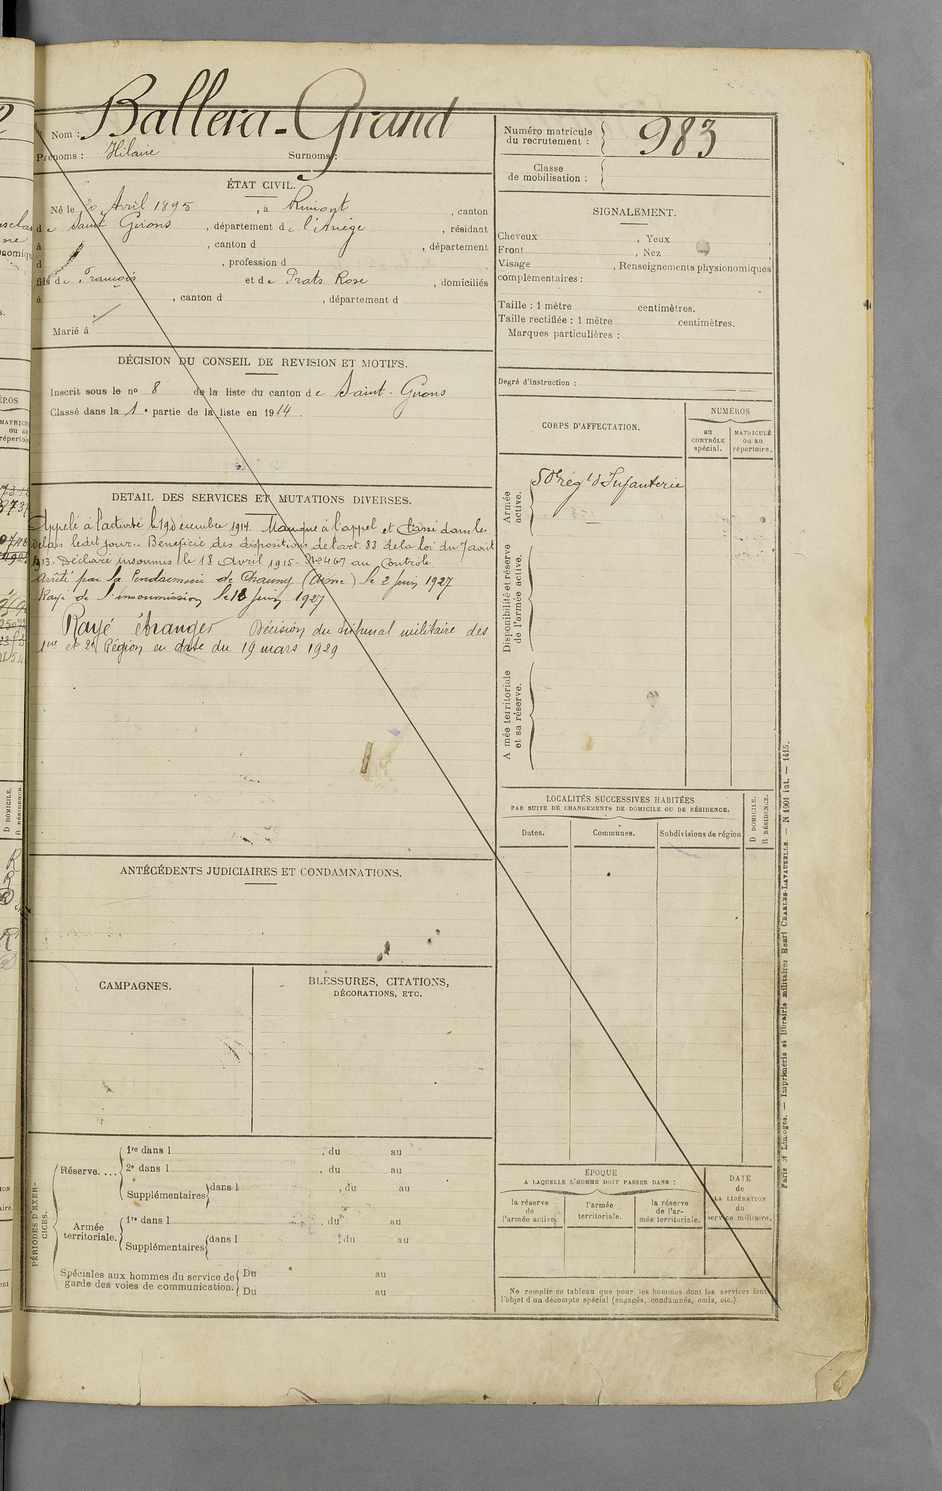 Nom : Ballera-Grand
Prénoms : Hilaire Surnoms :
Numéro matricule du recrutement : 983
Classe de mobilisation :
ÉTAT CIVIL.
Né le 20 Avril 1895, à Rimont, canton
de Saint Girons, département de l'Ariège, résidant
à , canton d , département
d , profession d
fils de François et de Prats Rose, domiciliés
à , canton d , département d
Marié à
SIGNALEMENT.
Cheveux , Yeux
Front , Nez
Visage , Renseignements physionomiques
complémentaires :
Taille : 1 mètre centimètres.
Taille rectifiée : 1 mètre centimètres.
Marques particulières :
Degré d'instruction :
DÉCISION DU CONSEIL DE REVISION ET MOTIFS.
Inscrit sous le no 8 de la liste du canton de Saint-Girons
Classé dans la 1e partie de la liste en 1914.
DETAIL DES SERVICES ET MUTATIONS DIVERSES.
Appelé à l'activité le 19 décembre 1914. Manque à l'appel et dans les
délais ledit jour. Bénéficie des dispositions de l'art 83 de la loi du 7 août
1913. Déclaré insoumis le 13 Avril 1915 No 467 au Contrôle
Arrêté par la Gendarmerie de Chauny (Aisne) le 2 juin 1927
Rayé de l'insoumission le 18 juin 1927
Rayé étranger Décision du tribunal militaire des
1re et 2e Région en date du 19 mars 1929
CORPS D'AFFECTATION.
NUMÉROS
au CONTRÔLE spécial.
MATRICULE ou au répertoire.
Armée active.
50e Régt d'Infanterie
Disponibilité et réserve de l'armée active.
Armée territoriale et sa réserve.
LOCALITÉS SUCCESSIVES HABITÉES
PAR SUITE DE CHANGEMENTS DE DOMICILE OU DE RÉSIDENCE.
Dates.
Communes.
Subdivisions de région
D DOMICILE.
R RÉSIDENCE.
ANTÉCÉDENTS JUDICIAIRES ET CONDAMNATIONS.
CAMPAGNES.
BLESSURES, CITATIONS,
DÉCORATIONS, ETC.
PÉRIODES D'EXERCICES.
Réserve....
1re dans l , du au
2e dans l , du au
Supplémentaires dans l , du au
Armée territoriale.
1re dans l , du au
Supplémentaires dans l , du au
Spéciales aux hommes du service de garde des voies de communication.
Du au
Du au
ÉPOQUE
A LAQUELLE L'HOMME DOIT PASSER DANS :
la réserve de l'armée active.
l'armée territoriale.
la réserve de l'armée territoriale.
DATE de LA LIBÉRATION du service militaire.
Ne remplir ce tableau que pour les hommes dont les services font
l'objet d'un décompte spécial (engagés, condamnés, omis, etc.)
Paris et Limoges. — Imprimerie et librairie militaires Henri CHARLES-LAVAUZELLE. — N 1901 int. — 1415.